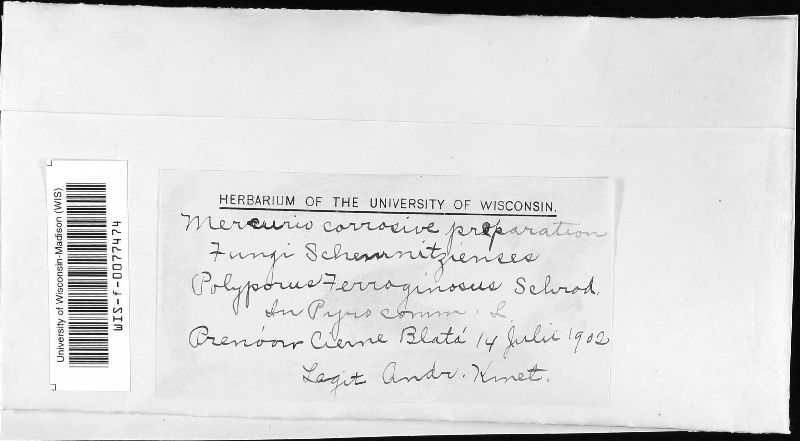 HERBARIUM OF THE UNIVERSITY OF WISCONSIN.
Mercurio corrosive preparation
Fungi Schemnitzienses
Polyporus Ferroginosus Schrad.
In Pyro comm. L.
Prencow Cierne Blatá 14 Julii 1902
Legit Andr. Kmet.
University of Wisconsin-Madison (WIS)
WIS-f-0077474